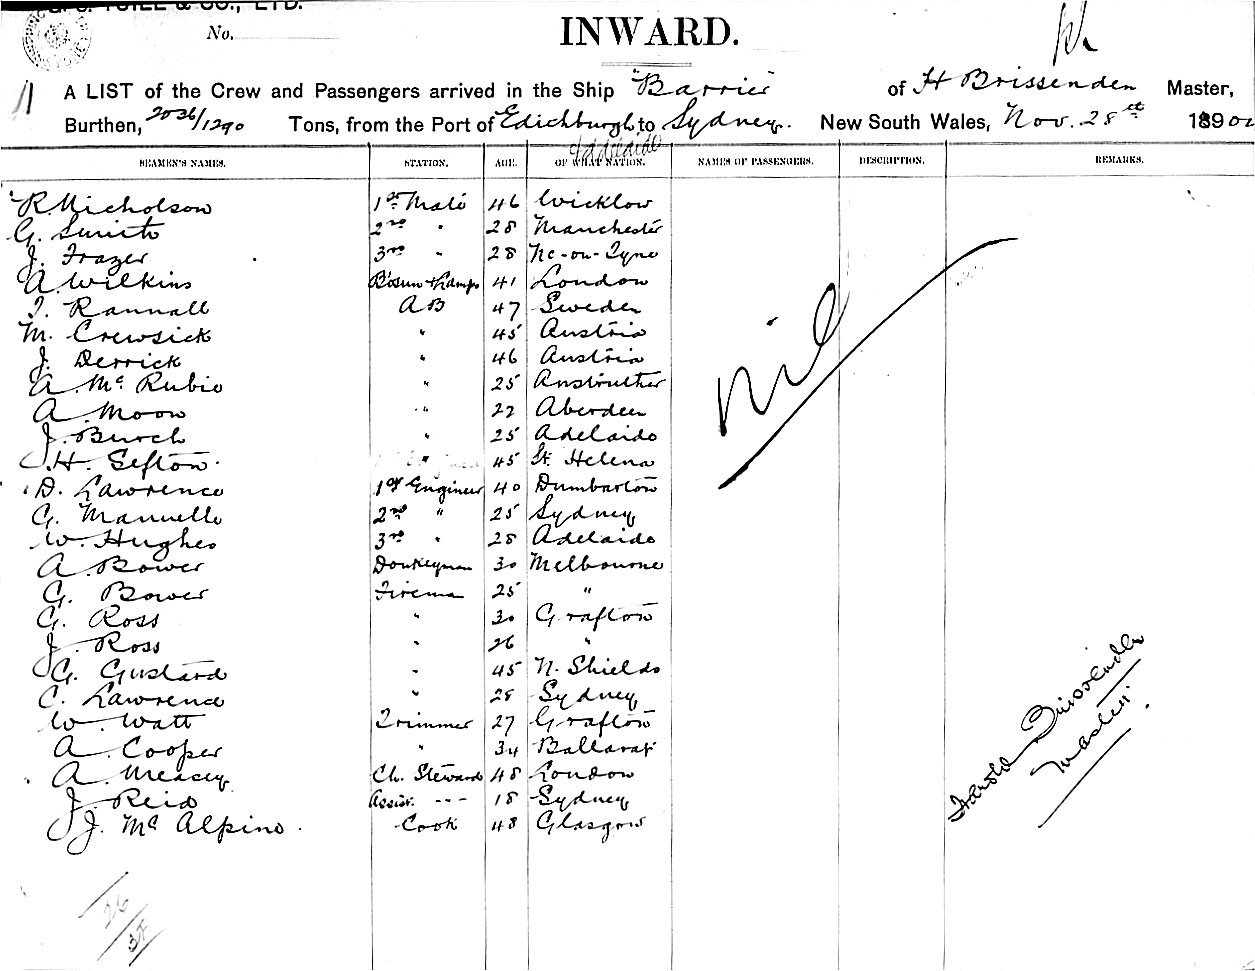 & CO., LTD.
No.
INWARD.
A LIST of the Crew and Passengers arrived in the Ship "Barrier" of H Brissenden Master,
Burthen, 2036/1290 Tons, from the Port of Edithburgh, to Sydney. New South Wales, Nov. 28th 190
Adelaide
SEAMEN'S NAMES. STATION. AGE. OF WHAT NATION. NAMES OF PASSENGERS. DESCRIPTION. REMARKS.
R. Nicholson 1st Mate 46 Wicklow
G. 2nd " 28 Manchester
J. Frazer 3rd " 28 Nc-on-Tyne
A Wilkins Bosun & Lamps 41 London
Rannall AB 47 Sweden
M. Crewsick " 45 Austria
J. Derrick " 46 Austria
A. Mc Rubie " 25 Anstruther
A. Moon " 22 Aberdeen
J. Burch " 25 Adelaide
H. Sefton. " 45 St. Helena
D. Lawrence 1st Engineer 40 Dumbarton
G. 2nd " 25 Sydney
W. Hughes 3rd " 28 Adelaide
A. Bower Donkeyman 30 Melbourne
G. Bower Fireman 25 "
G. Ross " 30 Grafton
J. Ross " 26 "
G. Gustard " 45 N. Shields
C. Lawrence " 28 Sydney
W. Watt Trimmer 27 Grafton
A. Cooper " 34 Ballarat
A. Measey Ch. Steward 48 London
J. Reid Assist. --- 18 Sydney
J. Mc Alpine. Cook 48 Glasgow
Nil
Harold Brissenden
Master.
26